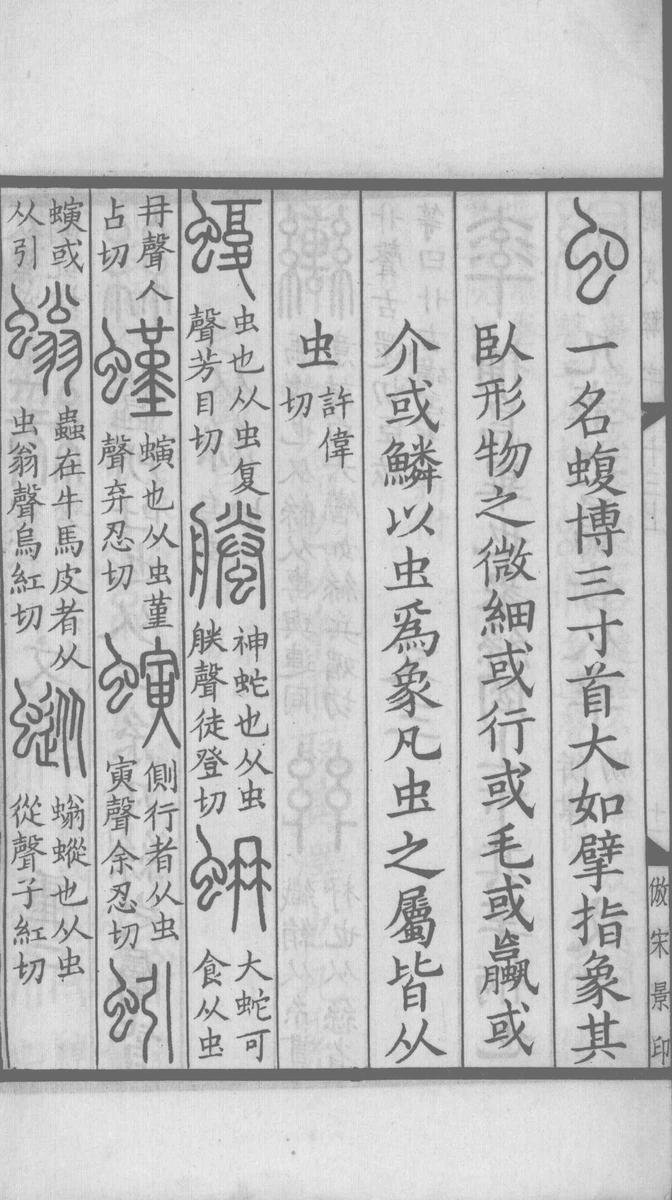 虫一名蝮博三寸首大如擘指象其
臥形物之微細或行或毛或蠃或
介或鱗以虫為象凡虫之屬皆从
虫許偉切
蝮虫也从虫复聲芳目切螣神蛇也从虫朕聲徒登切蚺大蛇可食从虫
冄聲人占切螼螾也从虫堇聲弃忍切螾側行者从虫寅聲余忍切蚓
螾或从引螉蟲在牛馬皮者从虫翁聲烏紅切蜙螉蜙也从虫從聲子紅切
倣宋景印